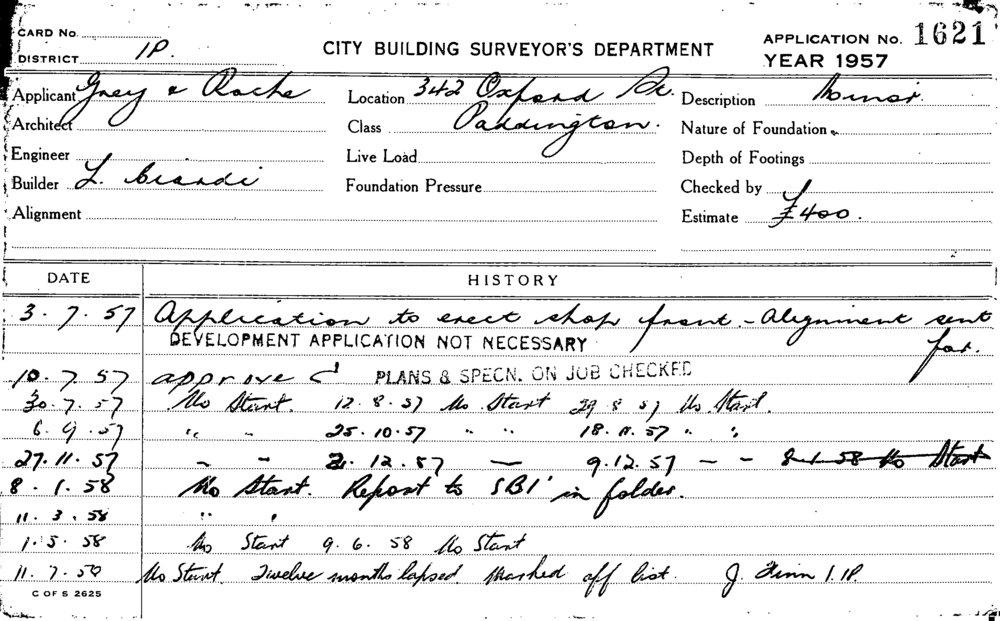 CARD No.
DISTRICT 1P.
CITY BUILDING SURVEYOR'S DEPARTMENT
APPLICATION No. 1621
YEAR 1957
Applicant Grey & Roche
Location 342 Oxford St.
Description Minor.
Architect
Class Paddington.
Nature of Foundation
Engineer
Live Load
Depth of Footings
Builder L.
Foundation Pressure
Checked by
Alignment
Estimate £400.
DATE HISTORY
3. 7. 57 Application to erect shop front. - Alignment sent
for.
DEVELOPMENT APPLICATION NOT NECESSARY
10. 7. 57 approved PLANS & SPECN. ON JOB CHECKED
30. 7. 57 No Start. 12. 8. 57 No Start 29. 8. 57 No Start.
6. 9. 57 " " 25. 10. 57 " " 18. 11. 57 " "
27. 11. 57 - - 2. 12. 57 - 9. 12. 57 - - 8-1-58 No Start
8. 1. 58 No Start. Report to SBI in folder.
11. 3. 58 " "
1. 5. 58 No Start 9. 6. 58 No Start
11. 7. 58 No Start. Twelve months lapsed Marked off list. J. Finn 1.P.
C OF S 2625